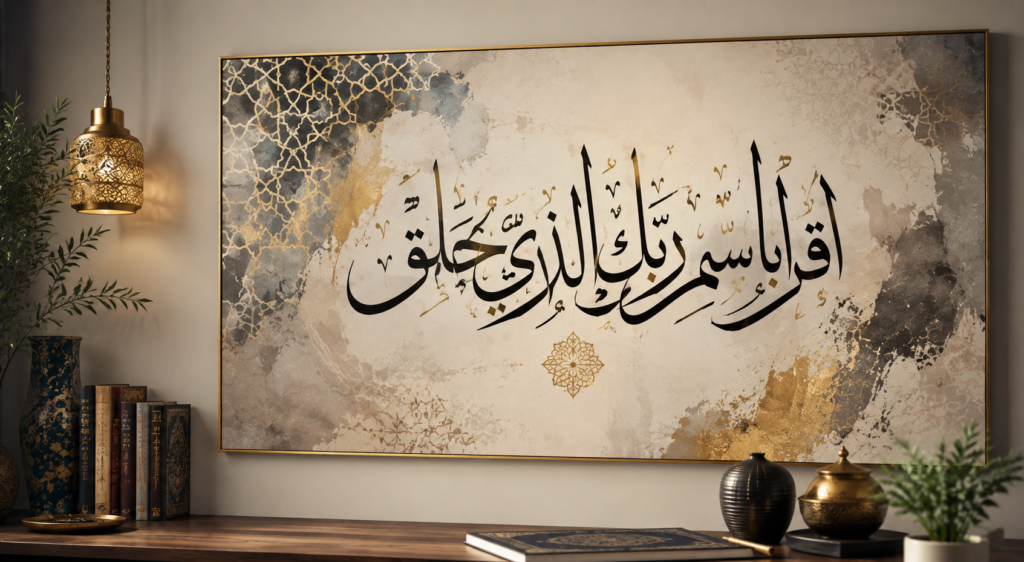 اقرا باسم ربّك الذي خلق